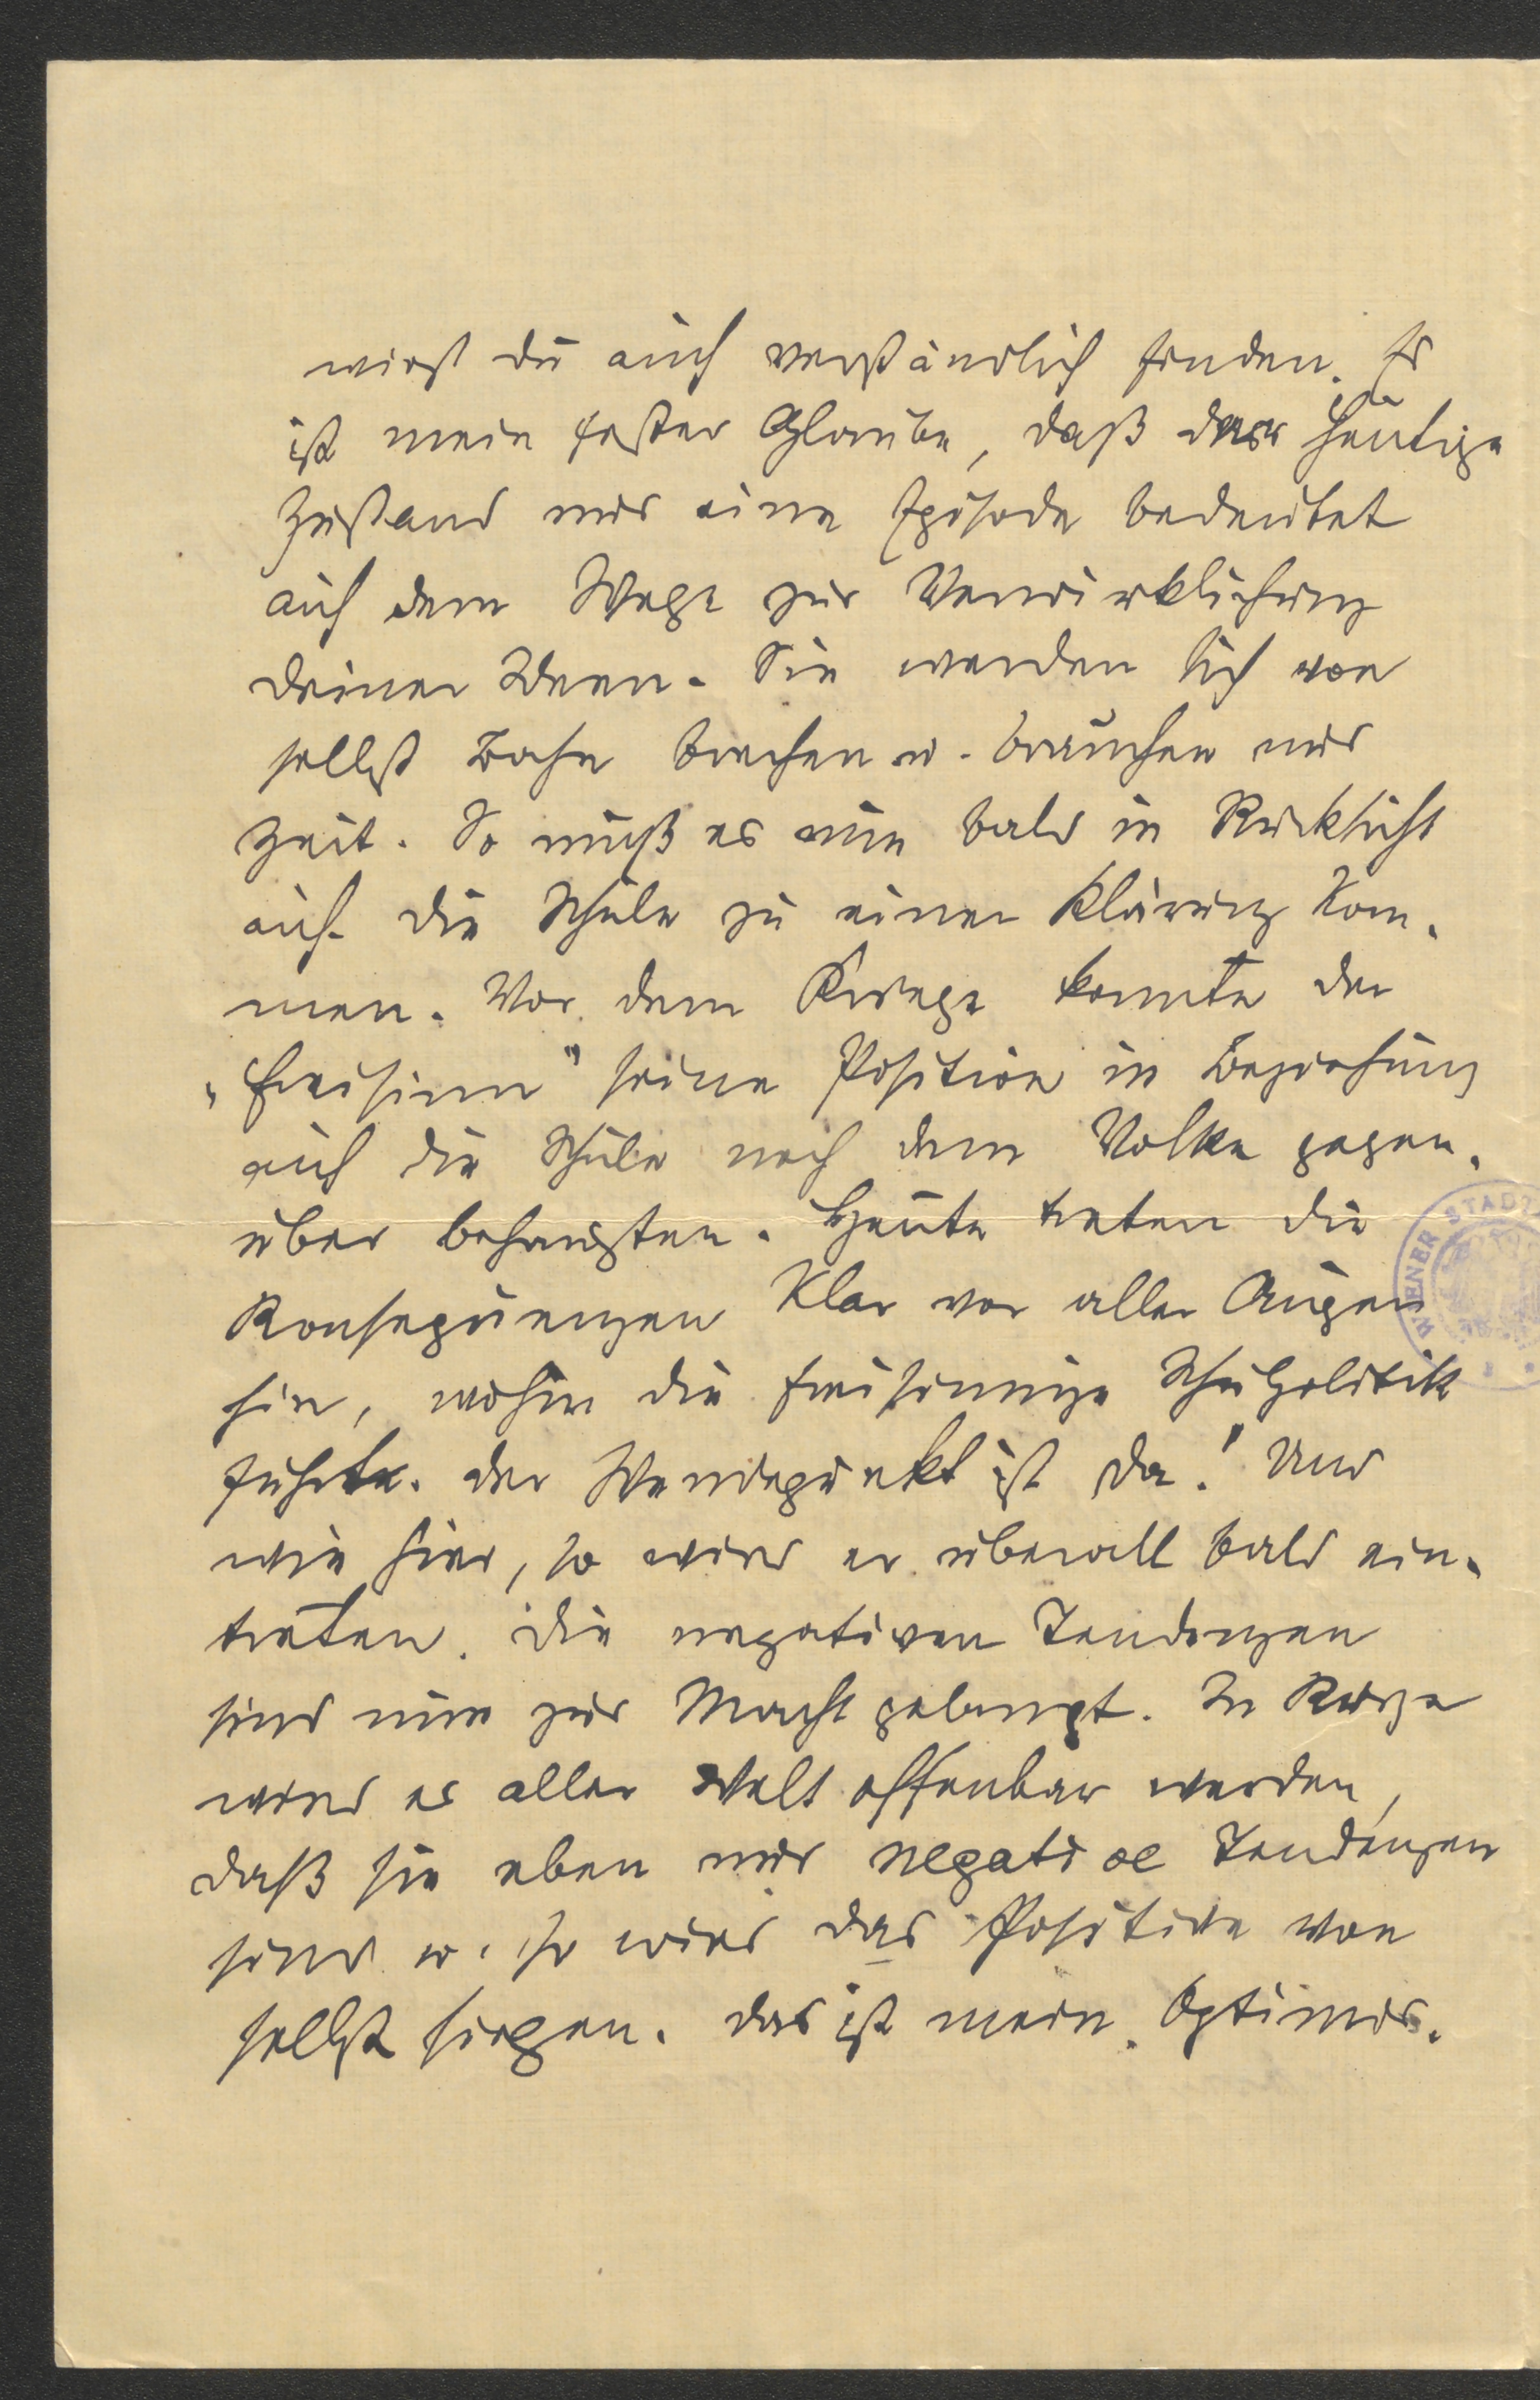 wirst du auch verständlich finden. Es
ist mein fester Glaube, daß der heutige
Zustand nur eine Episode bedeutet
auf dem Wege zur Verwirklichung
deiner Ideen. Sie werden sich von
selbst Bahn brechen u. brauchen nur
Zeit. So muß es nun bald in Rücksicht
auf die Schule zu einer Klärung kom-
men. Vor dem Kriege konnte der
„Freisinn" seine Position in Beziehung
auf die Schule noch dem Volke gegen-
über behaupten. Heute treten die
Konsequenzen klar vor aller Augen
hin, wohin die freisinnige Schulpolitik
führte. Der Wendepunkt ist da! Und
wie hier, so wird er überall bald ein-
treten. Die negativen Tendenzen
sind nun zur Macht gelangt. In Kürze
wird es aller Welt offenbar werden,
daß sie eben nur negative Tendenzen
sind u. so wird das Positive von
selbst siegen. Das ist mein Optimis-
WIENER STADT